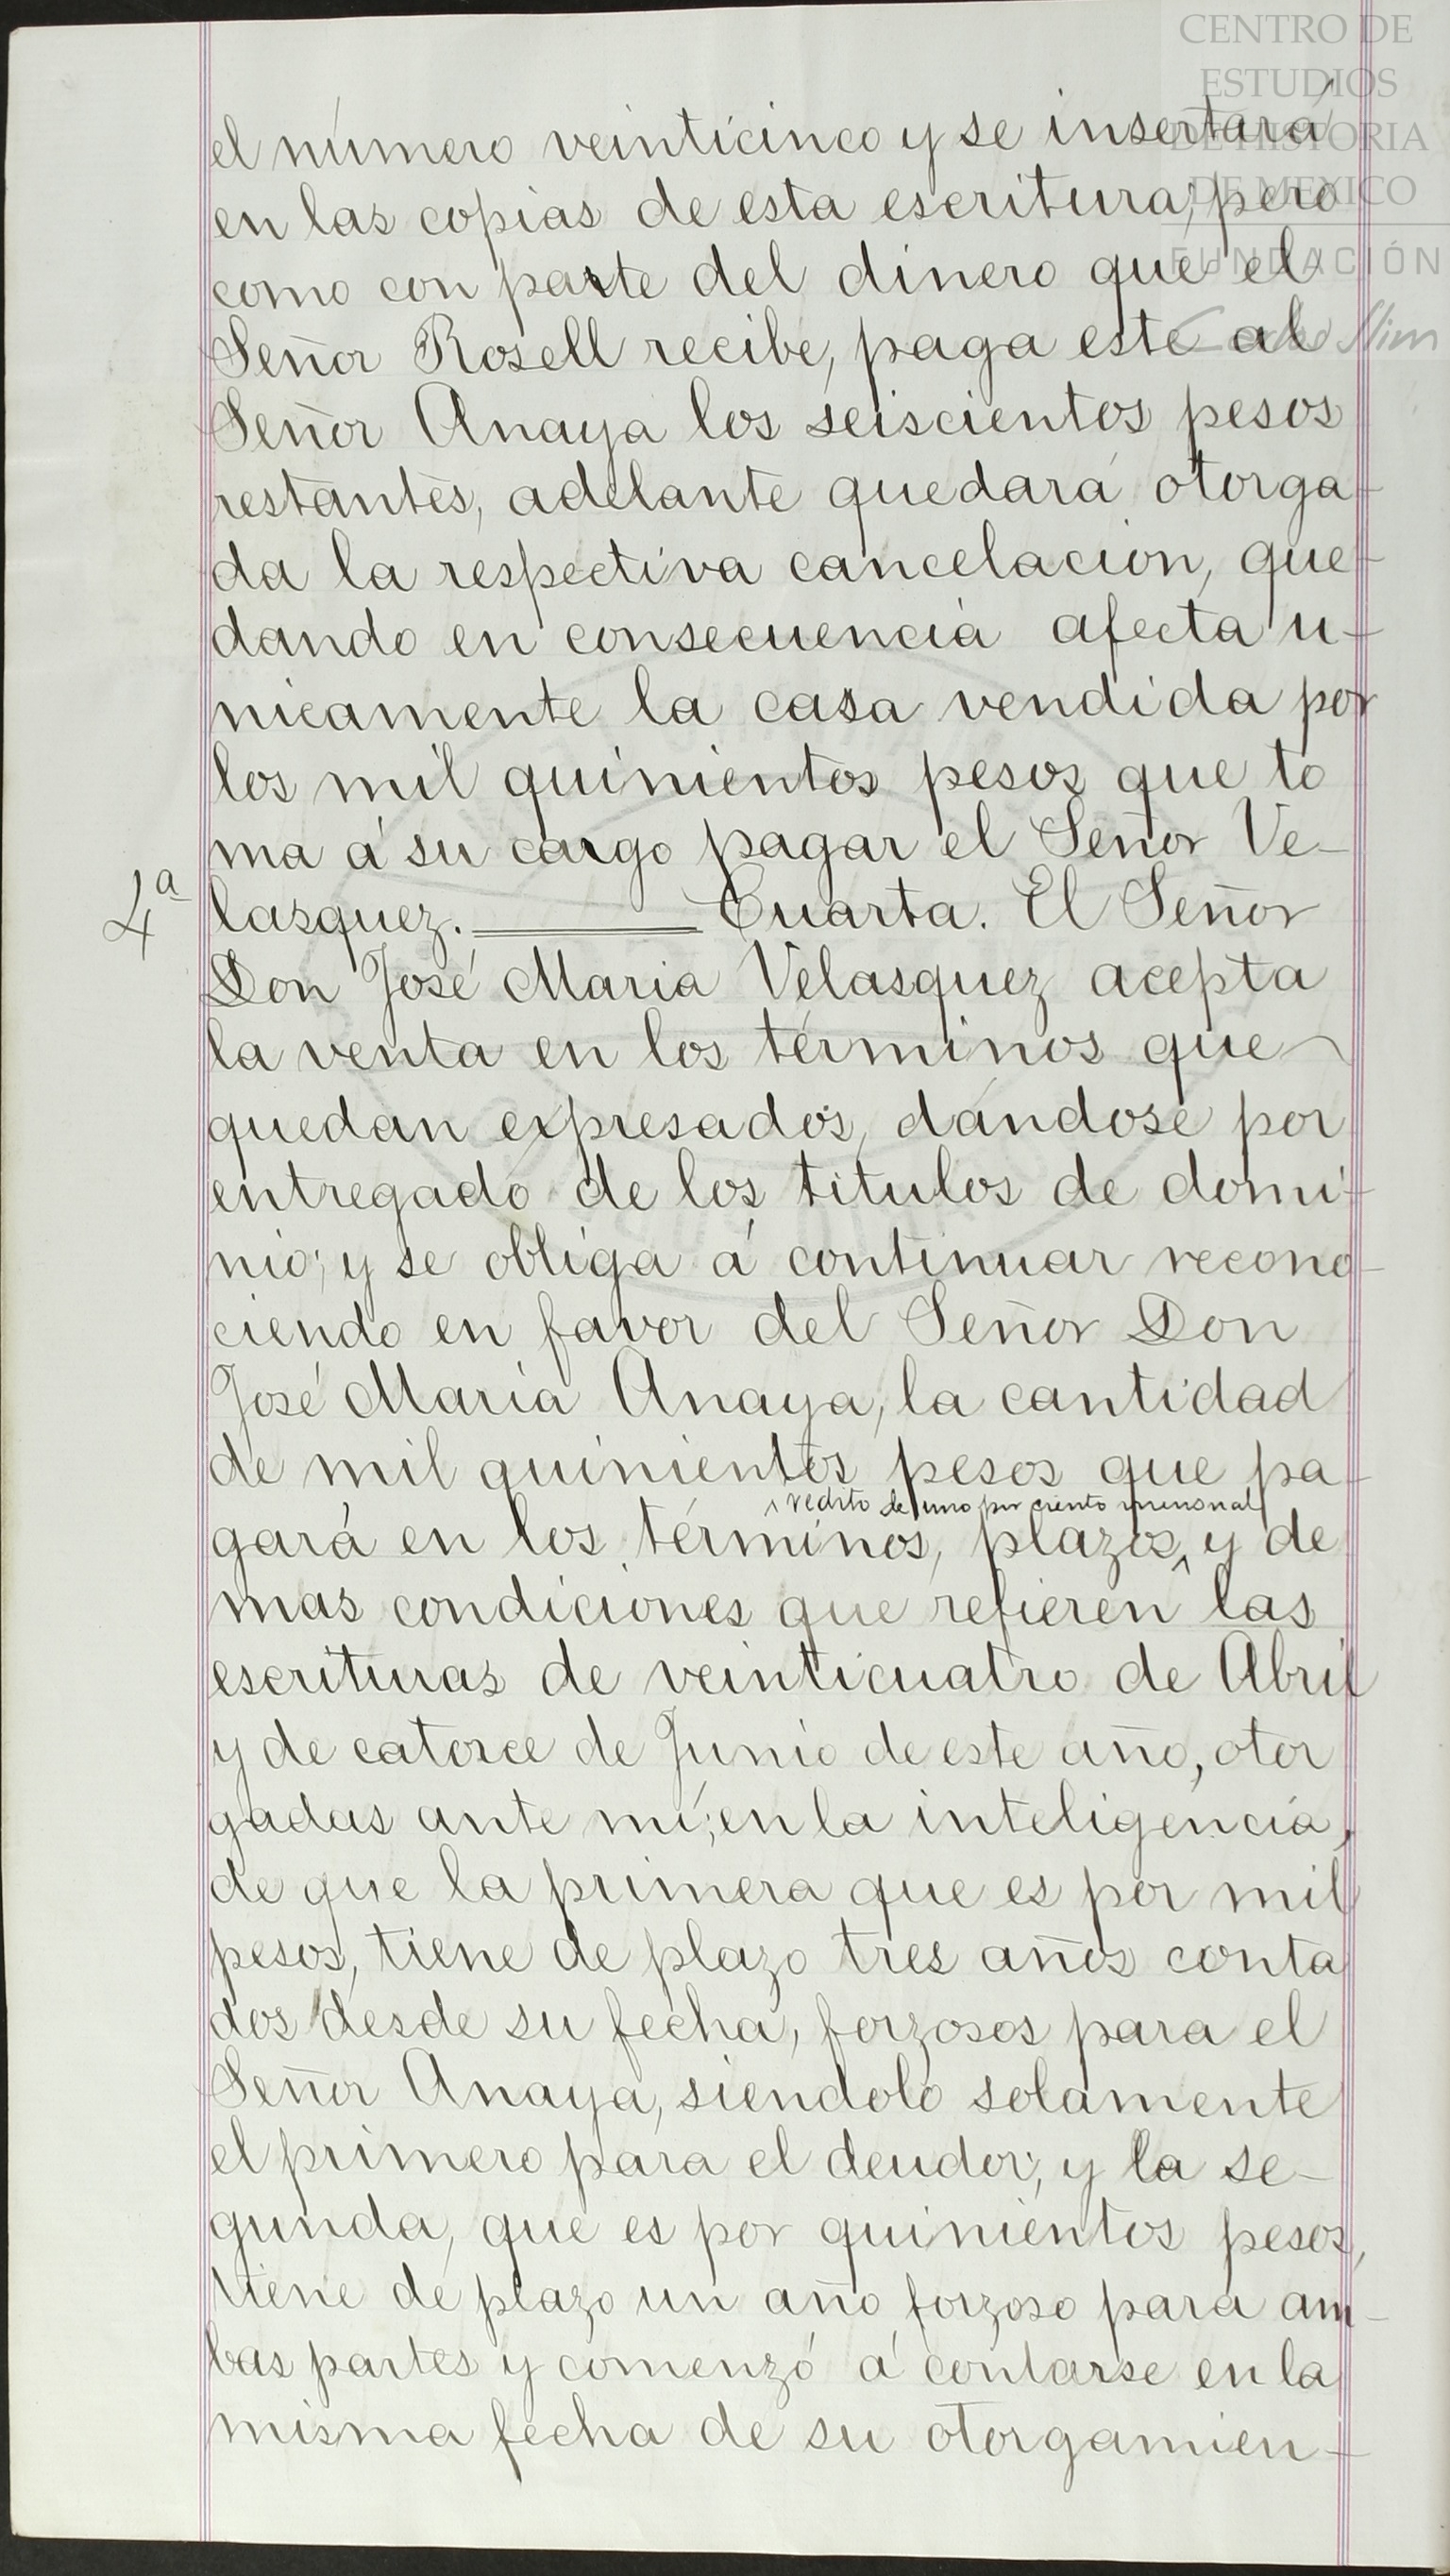 CENTRO DE
ESTUDIOS
DE HISTORIA
DE MEXICO
FUNDACIÓN
Carlos Slim
el número veinticinco y se insertará
en las copias de esta escritura; pero
como con parte del dinero que el
Señor Rosell recibe, paga este al
Señor Anaya los seiscientos pesos
restantes, adelante quedará otorga-
da la respectiva cancelacion, que-
dando en consecuencia afecta u-
nicamente la casa vendida por
los mil quinientos pesos que to
ma á su cargo pagar el Señor Ve-
4ª lasquez. Cuarta. El Señor
Don José Maria Velasquez acepta
la venta en los términos que
quedan expresados, dándose por
entregado de los titulos de domi-
nio; y se obliga á continuar recono-
ciendo en favor del Señor Don
José Maria Anaya, la cantidad
de mil quinientos pesos que pa-
redito de uno por ciento mensual
gará en los términos, plazos, y de
mas condiciones que refieren las
escrituras de veinticuatro de Abril
y de catorce de Junio de este año, otor
gadas ante mí; en la inteligencia,
de que la primera que es por mil
pesos, tiene de plazo tres años conta
dos desde su fecha, forzosos para el
Señor Anaya, siendolo solamente
el primero para el deudor; y la se-
gunda, que es por quinientos pesos,
tiene de plazo un año forzoso para am-
bas partes y comenzó á contarse en la
misma fecha de su otorgamien-